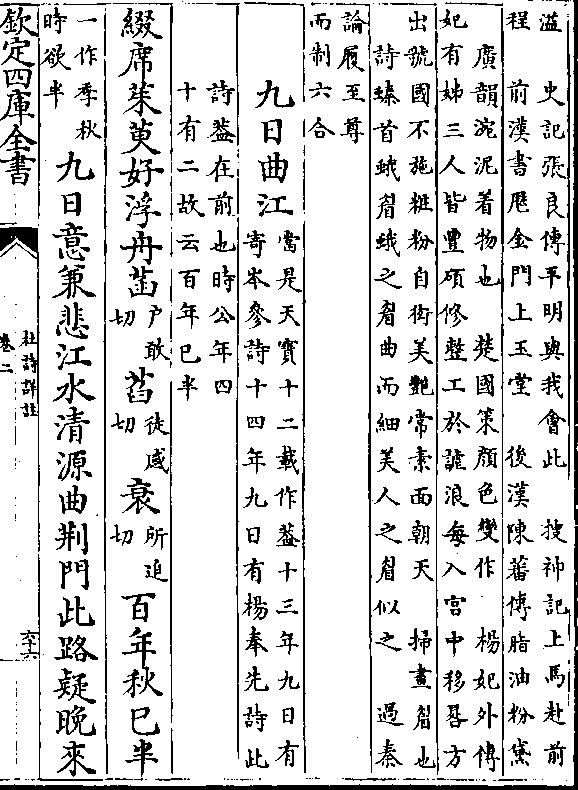 溢　史記張良傳平明與我會此　搜神記上馬赴前
程　前漢書歷金門上玉堂　後漢陳蕃傳脂油粉黛
廣韻涴泥着物也　楚國策顔色變作　楊妃外傳
妃有姊三人皆豐碩修整工於謔浪每入宫中移晷方
出虢國不施粧粉自衒美艶常素面朝天　掃畫眉也
詩螓首蛾眉蛾之眉曲而細美人之眉似之　過秦
論履至尊
而制六合
九日曲江 當是天寳十二載作葢十三年九日有
寄岑參詩十四年九日有楊奉先詩此
詩葢在前也時公年四
十有二故云百年已半
綴席茱萸好浮舟菡 户敢切 萏 徒感切 衰 所追切 百年秋已半
一作季秋時欲半 九日意兼悲江水清源曲荆門此路疑晚來
欽定四庫全書
杜詩詳註
卷二
六十六